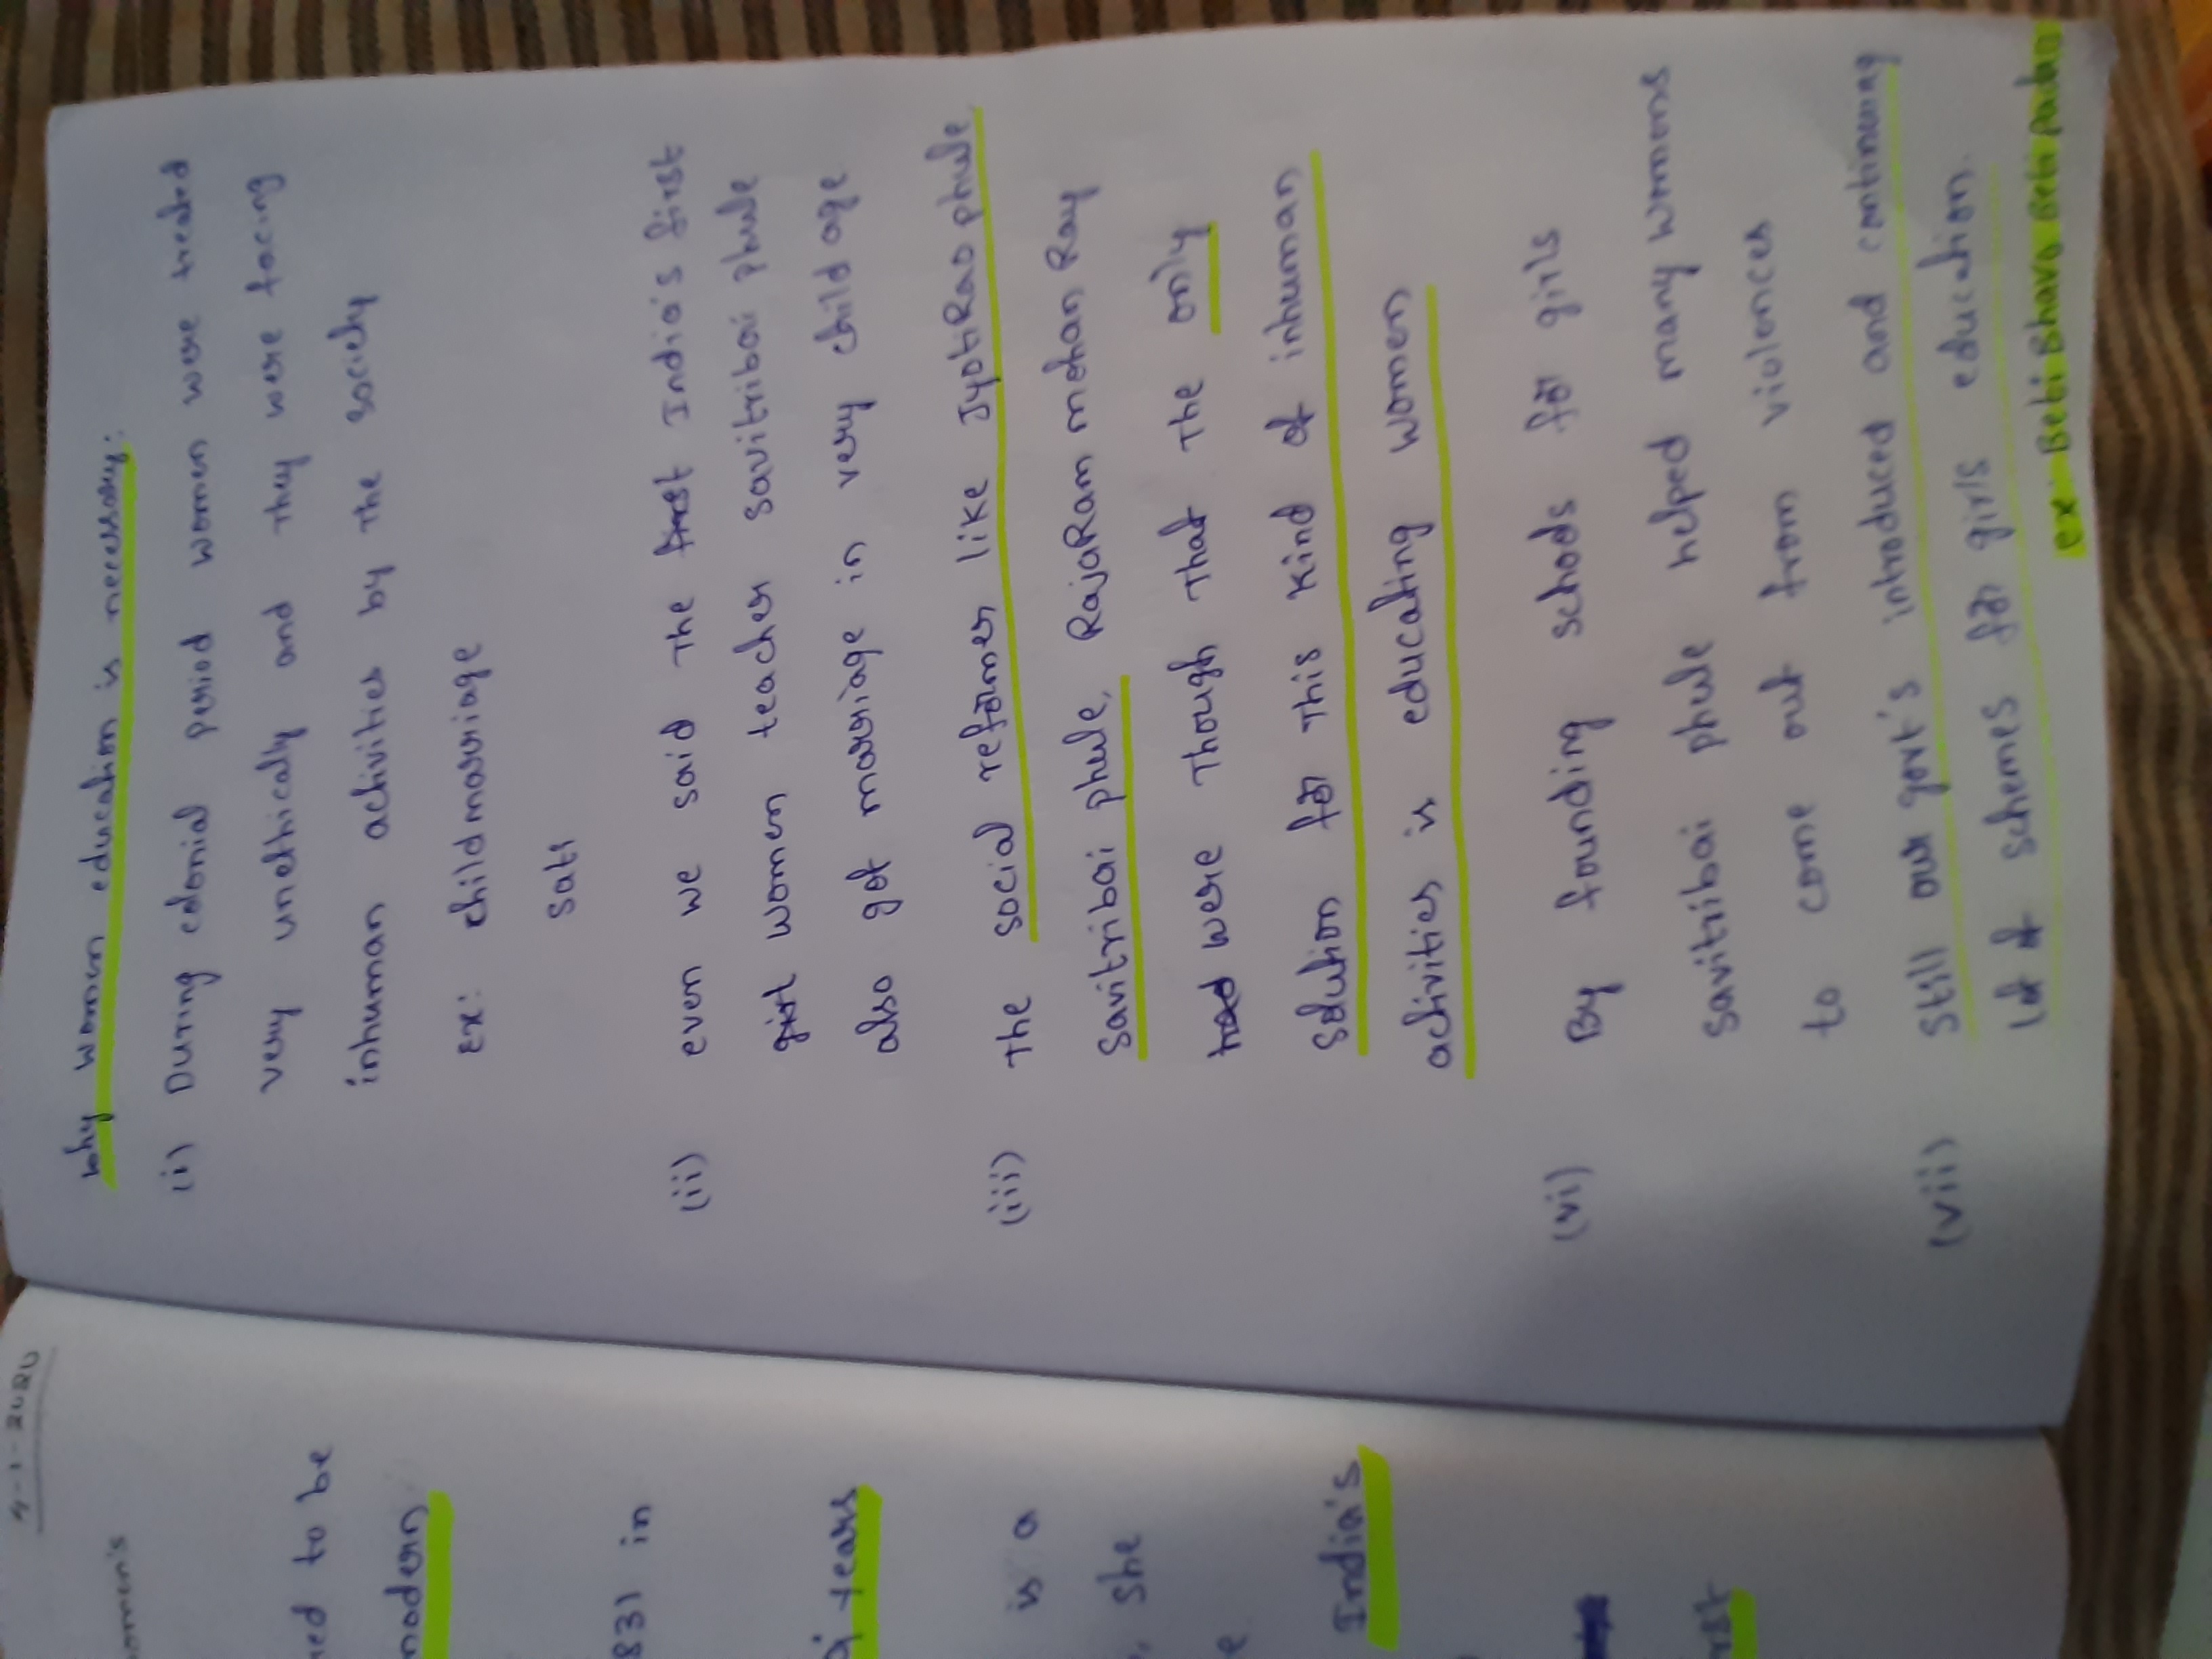 why women education is necessary:
(i) During colonial period women were treated
very unethically and they were facing
inhuman activities by the society
Ex: child marriage
sati
(ii) even we said the first India's first
girl women teacher savitribai phule
also got marriage in very child age
(iii) the social reformer like JyotiRao phule,
Savitribai phule, RajaRam mohan Ray
had were though that the only
solution for this kind of inhuman
activities is educating women
(vi) By founding schools for girls
savitribai phule helped many womens
to come out from violences
(vii) still our govt's introduced and continuing
lot of schemes for girls education.
ex:- Beti Bhavo Beti padao
omen's
ned to be
modern
831 in
years
is a
, she
e
India's
rst